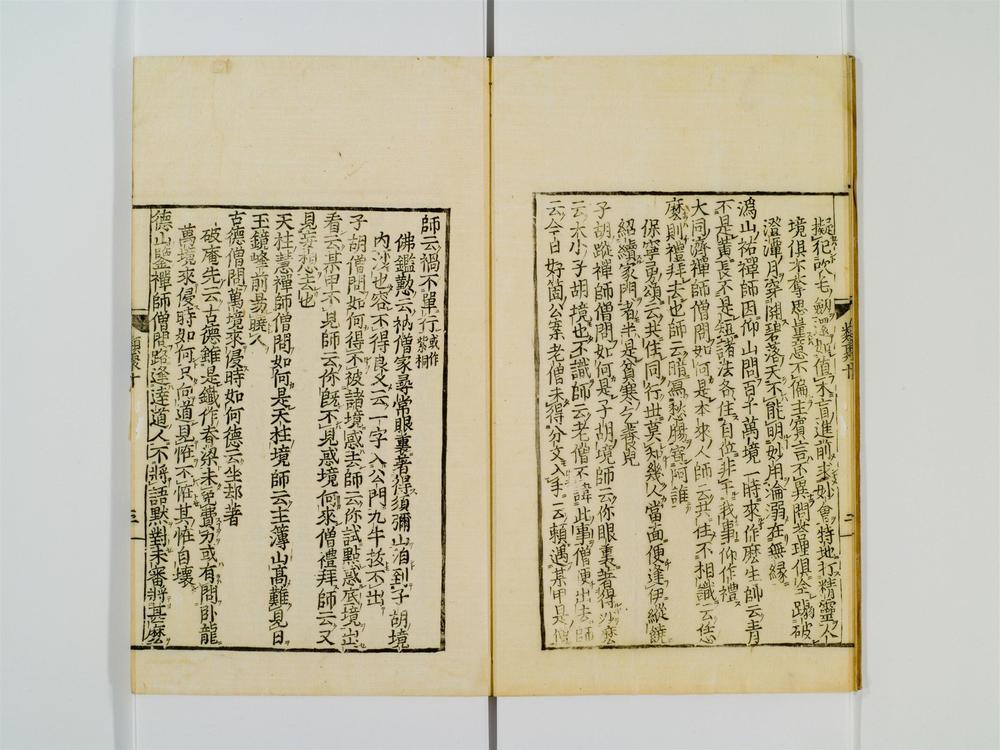 擬犯吹毛劒還他值不肯進前求妙會特地打精靈人
境俱不奪思量意不偏主賓言不異問答理俱全蹋破
澄潭月穿開碧落天不能明妙用淪溺在無緣
溈山祐禪師因仰山問百千萬境一時來作麽生師云青
不是黃長不是短諸法各住自位非干我事仰作禮
大同濟禪師僧問如何是本來人師云共住不相識云恁
麽則禮拜去也師云暗寫愁腸寄阿誰
保寧勇頌云共住同行世莫知幾人當面便逢伊縱饒
紹續家門者半是貧寒乞養兒
子胡蹤禪師僧問如何是子胡境師云你眼裏著得沙麽
云大小子胡境也不識師云老僧不諱此事僧便出去師
云今日好箇公案老僧未得分文入手云賴遇某甲是僧
類聚十
二
師云禍不單行或作
佛鑑懃云衲僧家尋常眼裏著得須彌山洎到子胡境
內沙也容不得良久云一字入公門九牛拔不出
子胡僧問如何得不被諸境惑去師云你試點惑底境出
看云某甲不見師云你既不見惑境何來僧禮拜師云又
見妄想去也
天柱慧禪師僧問如何是天柱境師云主簿山高難見日
玉鏡峰前易曉人
古德僧問萬境來侵時如何德云坐却著
破庵先云古德雖是鐵作脊梁未免費力或有問臥龍
萬境來侵時如何只向道見怪不怪其怪自壞
德山鑒禪師僧問路逢達道人不將語默對未審將甚麽
類聚十
三